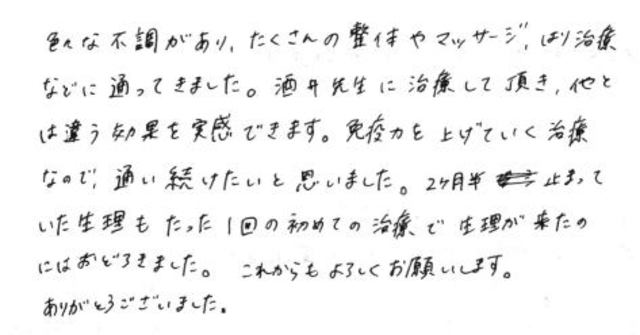 色々な不調があり、たくさんの整体やマッサージ、はり治療
などに通ってきました。酒井先生に治療して頂き、他と
は違う効果を実感できます。免疫力を上げていく治療
なので、通い続けたいと思いました。2ヶ月半 止まって
いた生理もたった1回の初めての治療で生理が来たの
にはおどろきました。これからもよろしくお願いします。
ありがとうございました。